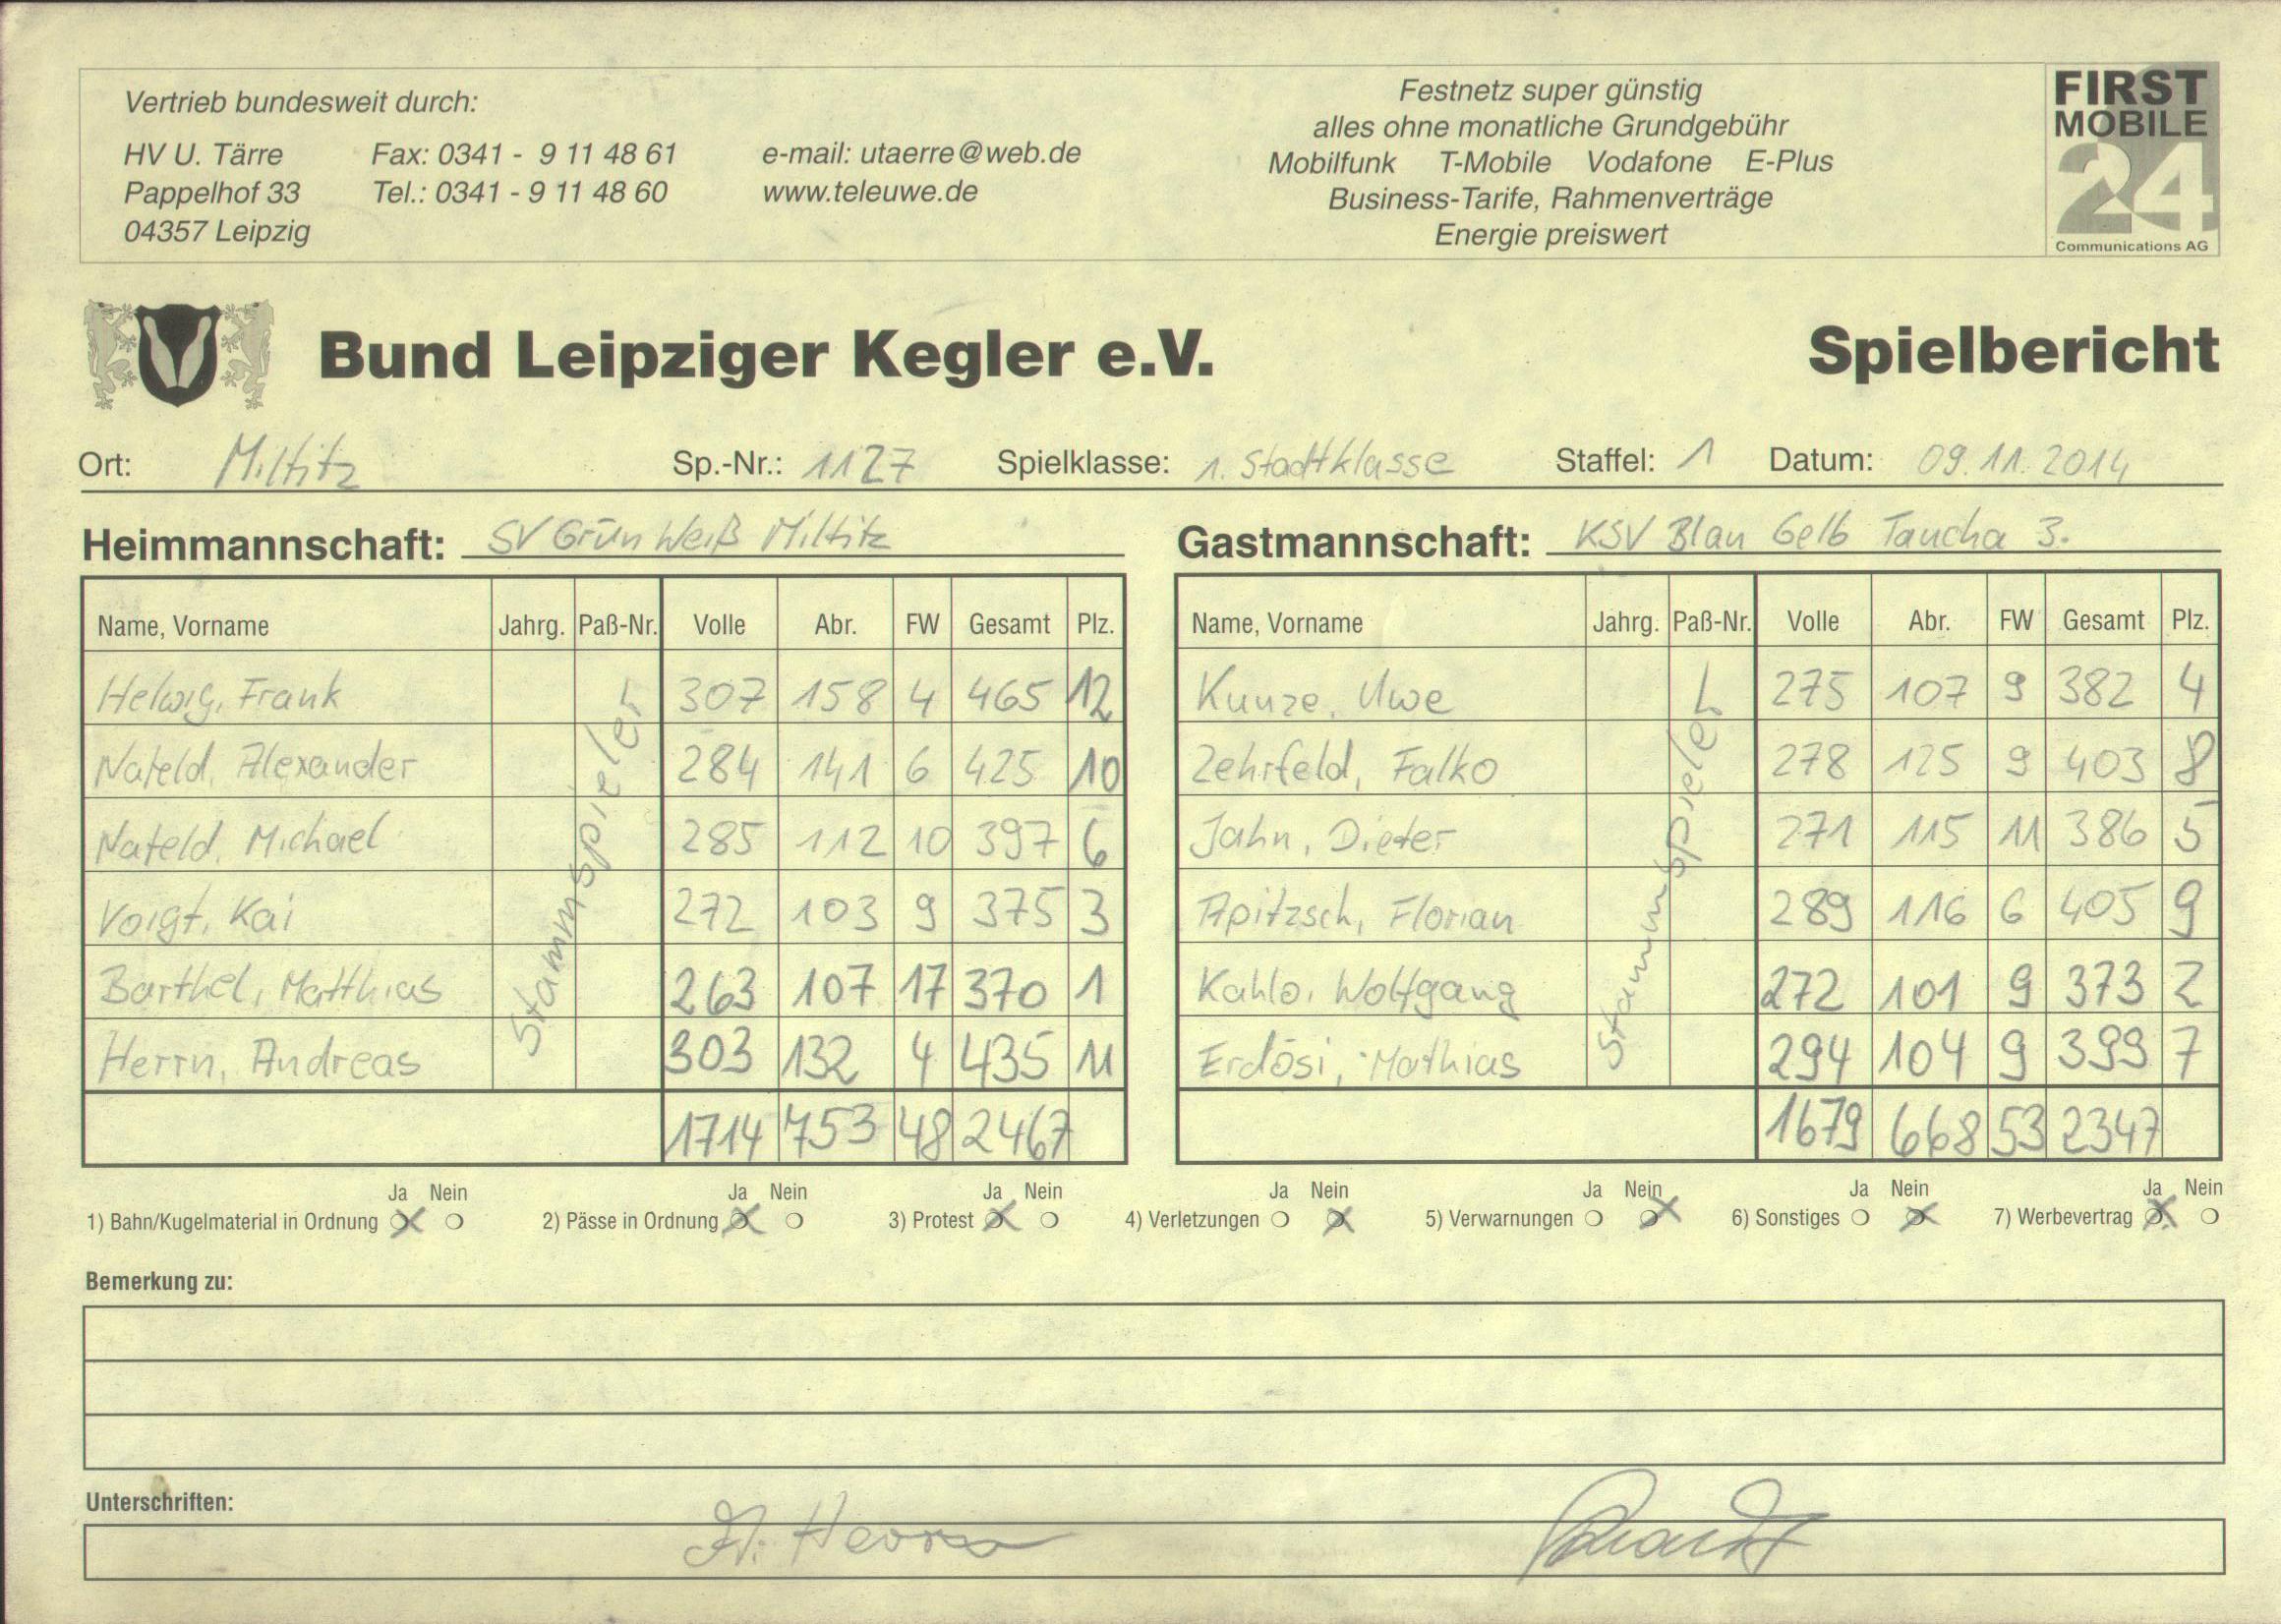 Vertrieb bundesweit durch:
HV U. Tärre Fax: 0341 - 9 11 48 61 e-mail: utaerre@web.de
Pappelhof 33 Tel.: 0341 - 9 11 48 60 www.teleuwe.de
04357 Leipzig
Festnetz super günstig
alles ohne monatliche Grundgebühr
Mobilfunk T-Mobile Vodafone E-Plus
Business-Tarife, Rahmenverträge
Energie preiswert
FIRST
MOBILE
24
Communications AG
Bund Leipziger Kegler e.V. Spielbericht
Ort: Miltitz Sp.-Nr.: 1127 Spielklasse: 1. Stadtklasse Staffel: 1 Datum: 09.11.2014
Heimmannschaft: SV Grün Weiß Miltitz
Name, Vorname Jahrg. Paß-Nr. Volle Abr. FW Gesamt Plz.
Helwig, Frank 307 158 4 465 12
Nafeld, Alexander 284 141 6 425 10
Nafeld, Michael 285 112 10 397 6
Voigt, Kai 272 103 9 375 3
Barthel, Matthias 263 107 17 370 1
Herrn, Andreas 303 132 4 435 11
Stammspieler
1714 753 48 2467
Gastmannschaft: KSV Blau Gelb Taucha 3.
Name, Vorname Jahrg. Paß-Nr. Volle Abr. FW Gesamt Plz.
Kunze, Uwe 275 107 9 382 4
Zehrfeld, Falko 278 125 9 403 8
Jahn, Dieter 271 115 11 386 5
Apitzsch, Florian 289 116 6 405 9
Kahlo, Wolfgang 272 101 9 373 2
Erdösi, Mathias 294 104 9 399 7
Stammspieler
1679 668 53 2347
Ja Nein Ja Nein Ja Nein Ja Nein Ja Nein Ja Nein Ja Nein
1) Bahn/Kugelmaterial in Ordnung 2) Pässe in Ordnung 3) Protest 4) Verletzungen 5) Verwarnungen 6) Sonstiges 7) Werbevertrag
Bemerkung zu:
Unterschriften:
A. Herrn